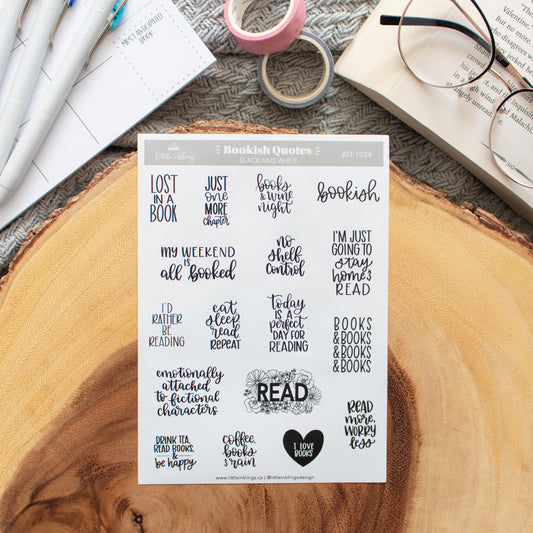 MOST ANTICIPATED
BOOK
little inklings
Bookish Quotes
BLACK AND WHITE
#ST-1036
LOST
IN A
BOOK
JUST
one
MORE
chapter
books
& wine
night
bookish
MY WEEKEND
IS
all booked
no
shelf
control
I'M JUST
GOING TO
stay
home &
READ
I'D
RATHER
BE
READING
eat
sleep
read
REPEAT
Today
IS A
perfect
DAY FOR
READING
BOOKS
& BOOKS
& BOOKS
& BOOKS
emotionally
attached
to fictional
characters
READ
READ
more,
WORRY
less
DRINK TEA,
READ BOOKS,
&
be happy
coffee,
books
& rain
I LOVE
BOOKS
www.littleinklings.ca | @littleinklingsdesign
Valentine,"
But no more,
who disagrees